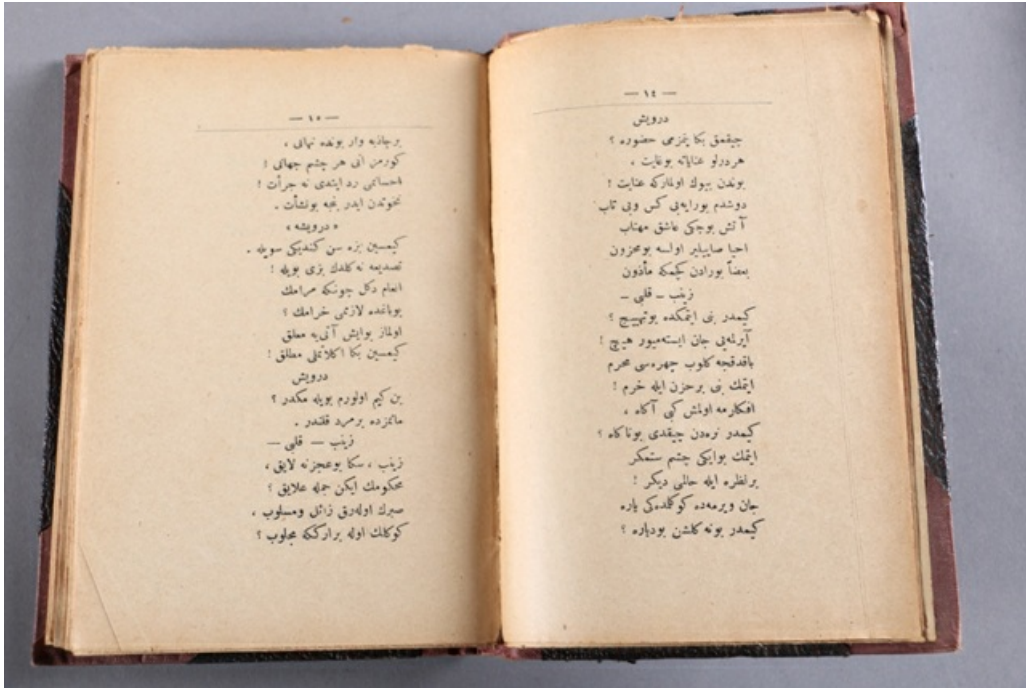 — ١٤ —
درويش
چيقمق بكا يتمزمى حضوره ؟
هردرلو عناياته بوغايت ،
بوندن بيوك اولمازكه عنايت !
دوشدم بورايه بى كس وبى تاب
آتش بوجكى عاشق مهتاب
احيا صاييلير اولسه بومحزون
بعضاً بورادن كچمكه مأذون
زينب – قلبى –
كيمدر بنى ايتمكده بوتهييج ؟
آيرلمه يى جان ايسته ميور هيچ !
باقدقجه كلوب چهره سى محرم
ايتمك بنى برحزن ايله خرم !
افكارمه اولمش كبى آكاه ،
كيمدر نره دن چيقدى بوناكاه ؟
ايتمك بوايكى چشم ستمكر
برلظره ايله حالمى ديكر !
جان ويرمه ده كوكلمده كى ياره
كيمدر بونه كلشن بودياره ؟
— ١٥ —
برجاذبه وار بونده نهانى ،
كورمز آنى هر چشم جهانى !
احسانمى رد ايتدى نه جرأت !
نخوتدن ايدر نجه بونشأت .
« درويشه »
كيمسين بزه سن كنديكى سويله .
تصديعه نه كلدك بزى بويله !
انعام دكل چونكه مرامك
بوباغده لازمى خرامك ؟
اولماز بوايش آتى يه معلق
كيمسين بكا اكلاتملى مطلق !
درويش
بن كيم اولورم بويله مكدر ؟
ماتمزده برمرد قلندر .
زينب — قلبى —
زينب ، سكا بوعجزنه لايق ،
محكومك ايكن جمله علايق ؟
صبرك اوله رق زائل ومسلوب ،
كوكلك اوله برارككه مجلوب ؟